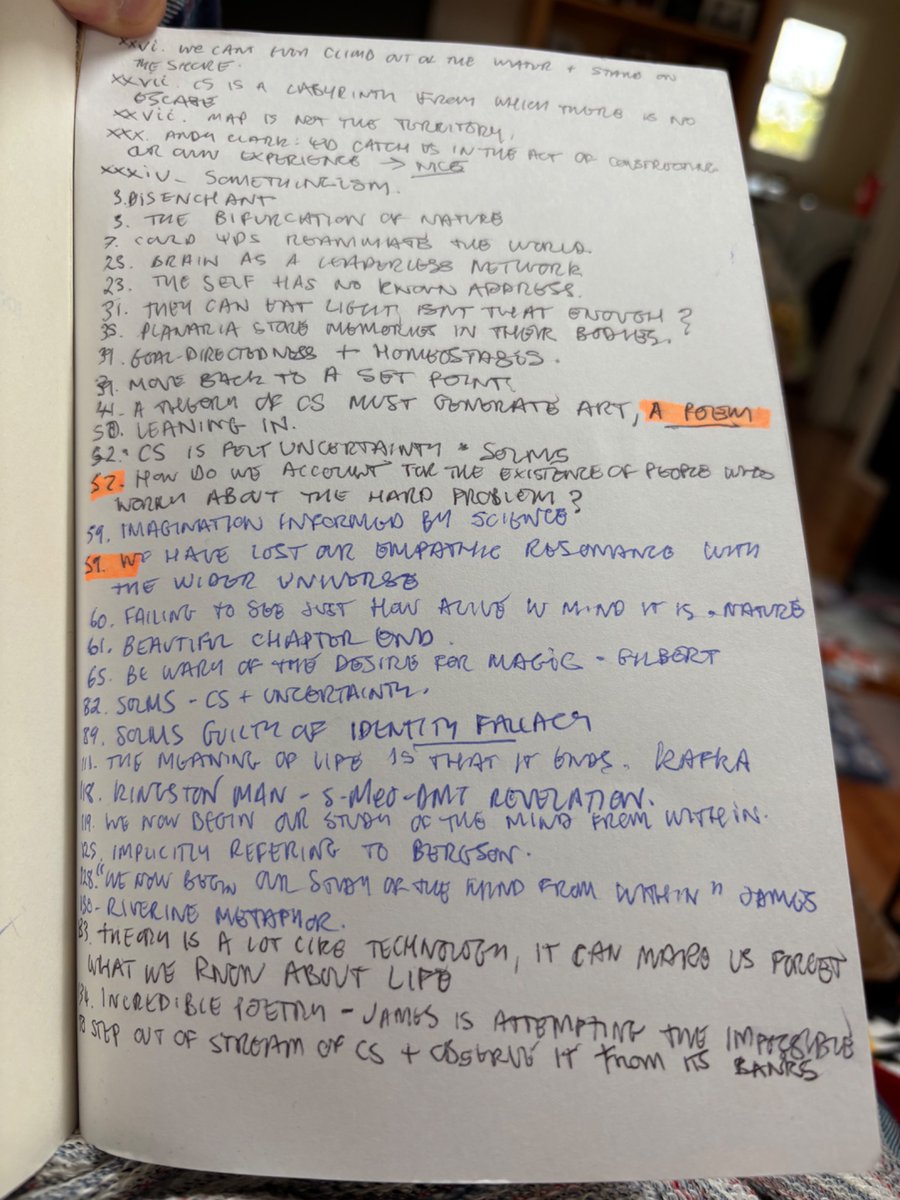 xxvi. WE CAN'T EVEN CLIMB OUT OF THE WATER + STAND ON
THE SHORE.
xxvii. CS IS A LABYRINTH FROM WHICH THERE IS NO
ESCAPE
xxvii. MAP IS NOT THE TERRITORY.
xxx. ANDY CLARK: 4D CATCH US IN THE ACT OF CONSTRUCTING
OUR OWN EXPERIENCE →
xxxiv- SOMETHINGISM.
3. DISENCHANT
3. THE BIFURCATION OF NATURE
7. COULD 4DS REANIMATE THE WORLD.
23. BRAIN AS A LEADERLESS NETWORK
23. THE SELF HAS NO KNOWN ADDRESS.
31. THEY CAN EAT LIGHT, ISNT THAT ENOUGH?
35. PLANARIA STORE MEMORIES IN THEIR BODIES.
39. GOAL-DIRECTEDNESS + HOMEOSTASIS.
39. MOVE BACK TO A SET POINT.
41- A THEORY OF CS MUST GENERATE ART, A POEM
50. LEANING IN.
52. CS IS FELT UNCERTAINTY * SOLMS
52. HOW DO WE ACCOUNT FOR THE EXISTENCE OF PEOPLE WHO
WORRY ABOUT THE HARD PROBLEM?
59. IMAGINATION INFORMED BY SCIENCE
59. WE HAVE LOST OUR EMPATHIC RESONANCE WITH
THE WIDER UNIVERSE
60. FAILING TO SEE JUST HOW ALIVE W MIND IT IS - NATURE
61. BEAUTIFUL CHAPTER END.
65. BE WARY OF THE DESIRE FOR MAGIC - GILBERT
82. SOLMS - CS + UNCERTAINTY.
89. SOLMS GUILTY OF IDENTITY FALLACY
111. THE MEANING OF LIFE IS THAT IT ENDS. KAFKA
118. KINGSTON MAN - 5-MEO-DMT REVELATION.
119. WE NOW BEGIN OUR STUDY OF THE MIND FROM WITHIN.
125. IMPLICITLY REFERING TO BERGSON.
128. "WE NOW BEGIN OUR STUDY OF THE MIND FROM WITHIN" JAMES
130- RIVERINE METAPHOR.
33. THEORY IS A LOT LIKE TECHNOLOGY, IT CAN MAKE US FORGET
WHAT WE KNOW ABOUT LIFE
34. INCREDIBLE POETRY - JAMES IS ATTEMPTING THE IMPOSSIBLE
STEP OUT OF STREAM OF CS + OBSERVE IT FROM ITS BANKS